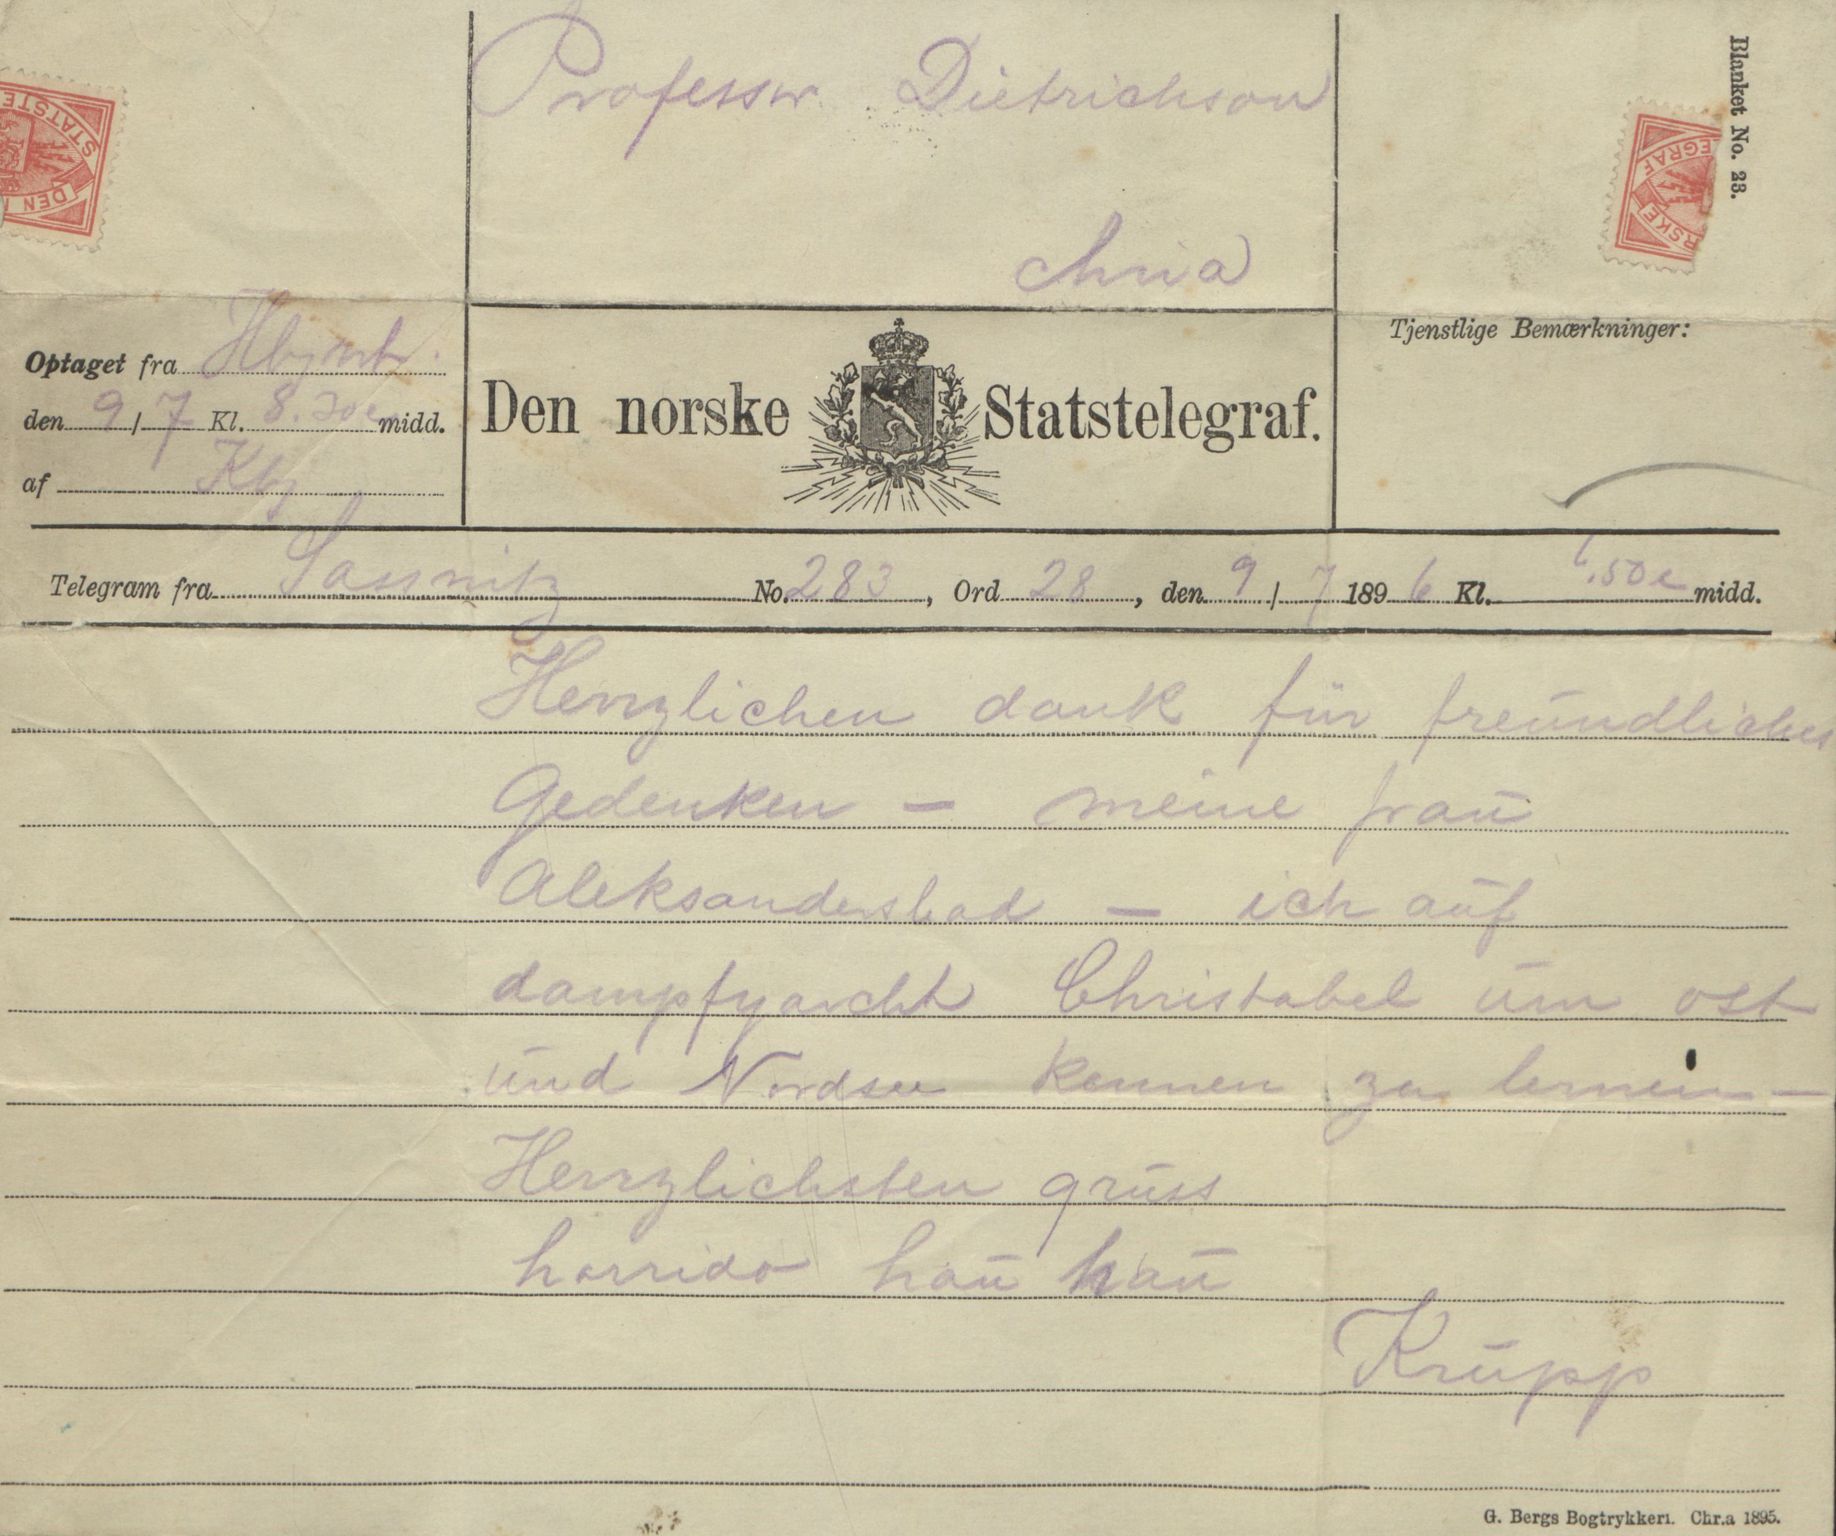 Professor Dietrichson
Chria
Blanket No. 23.
Optaget fra
den 9/7 Kl. 8.30 e midd.
af Kbj
Den norske Statstelegraf.
Tjenstlige Bemærkninger:
Telegram fra Sassnitz No. 283, Ord 28, den 9/7 1896 Kl. 6.50 e midd.
Herzlichen dank für freundliches
Gedenken – meine frau
Aleksandersbad – ich auf
dampfyacht Christabel um ost
und Nordsee kennen zu lernen –
Herzlichsten gruss
horrido hau hau
Krupp
G. Bergs Bogtrykkeri. Chr.a 1895.